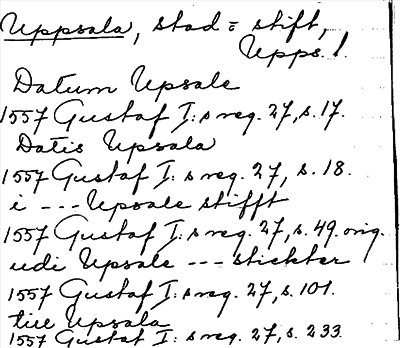 Uppsala, stad = stift,
Upps. l.
Datum Upsale
1557 Gustaf I:s reg. 27, s. 17.
Datis Upsala
1557 Gustaf I:s reg. 27, s. 18.
i --- Upsale stifft
1557 Gustaf I:s reg. 27, s. 49. orig.
udi Upsale --- stickter
1557 Gustaf I:s reg. 27, s. 101.
till Upsala
1557 Gustaf I:s reg. 27, s. 233.